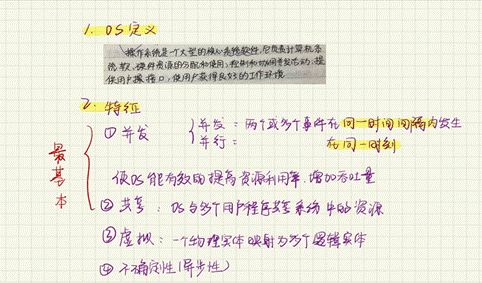 1. OS定义
操作系统是一个大型的核心系统软件,它负责计算机系
统软、硬件资源的分配和使用;控制和协调并发活动;提
供用户接口,使用户获得良好的工作环境
2. 特征
最基本
①并发
并发:两个或多个事件在同一时间间隔内发生
并行: 在同一时刻
使OS能有效的提高资源利用率,增加吞吐量
②共享:OS与多个用户程序共享系统中的资源
③虚拟:一个物理实体映射为多个逻辑实体
④不确定性(异步性)